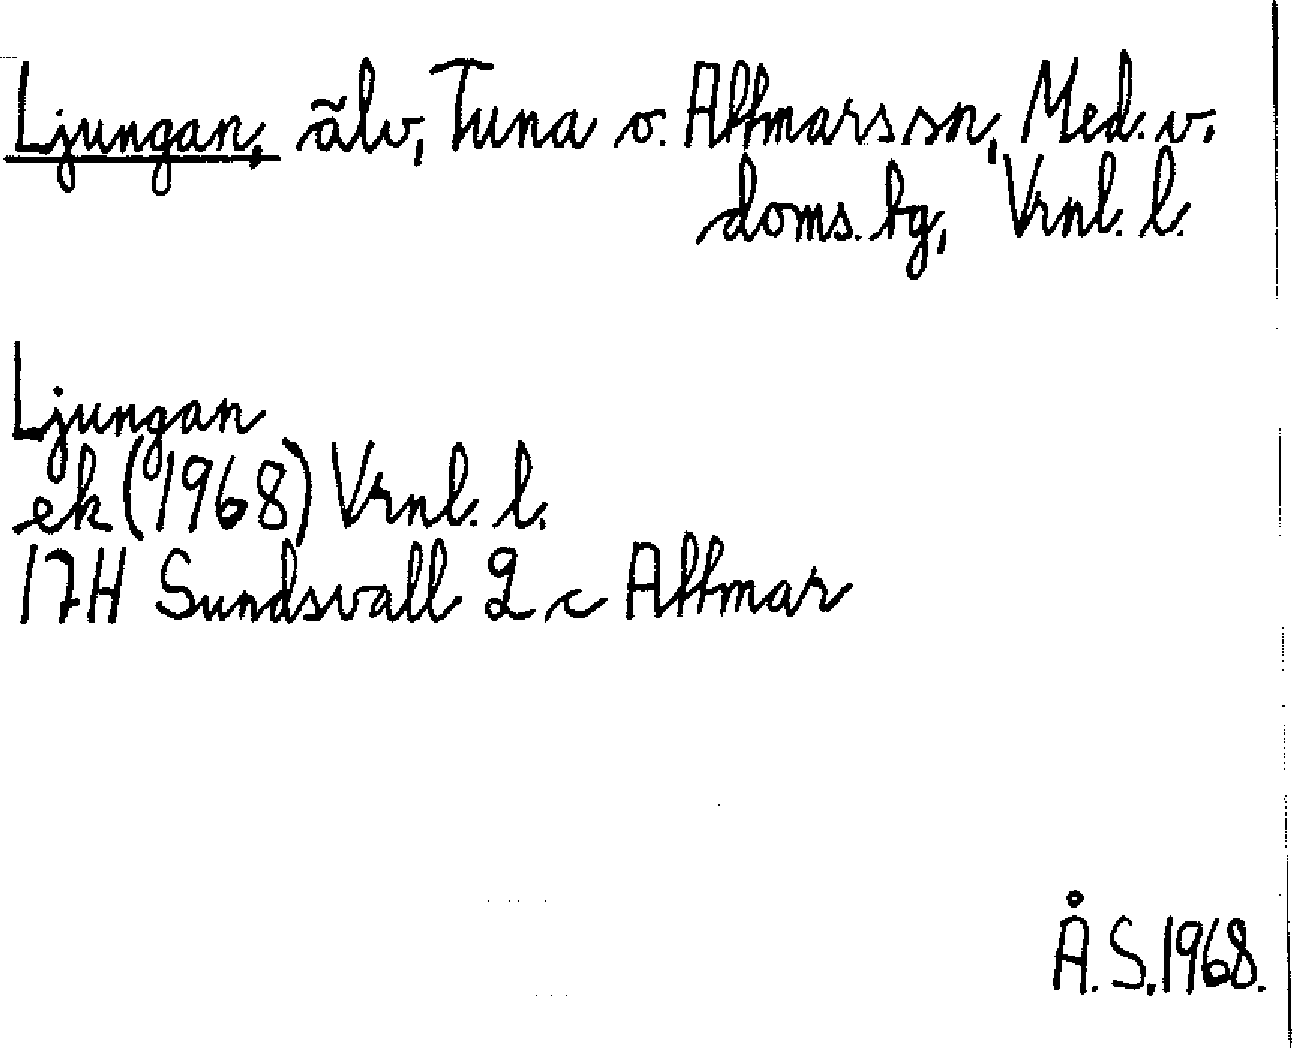 Ljungan, älv, Tuna o. Attmars sn, Med. v.
doms. tg, Vrnl. l.
Ljungan
ek (1968) Vrnl. l.
17H Sundsvall 2 c Attmar
Å. S. 1968.